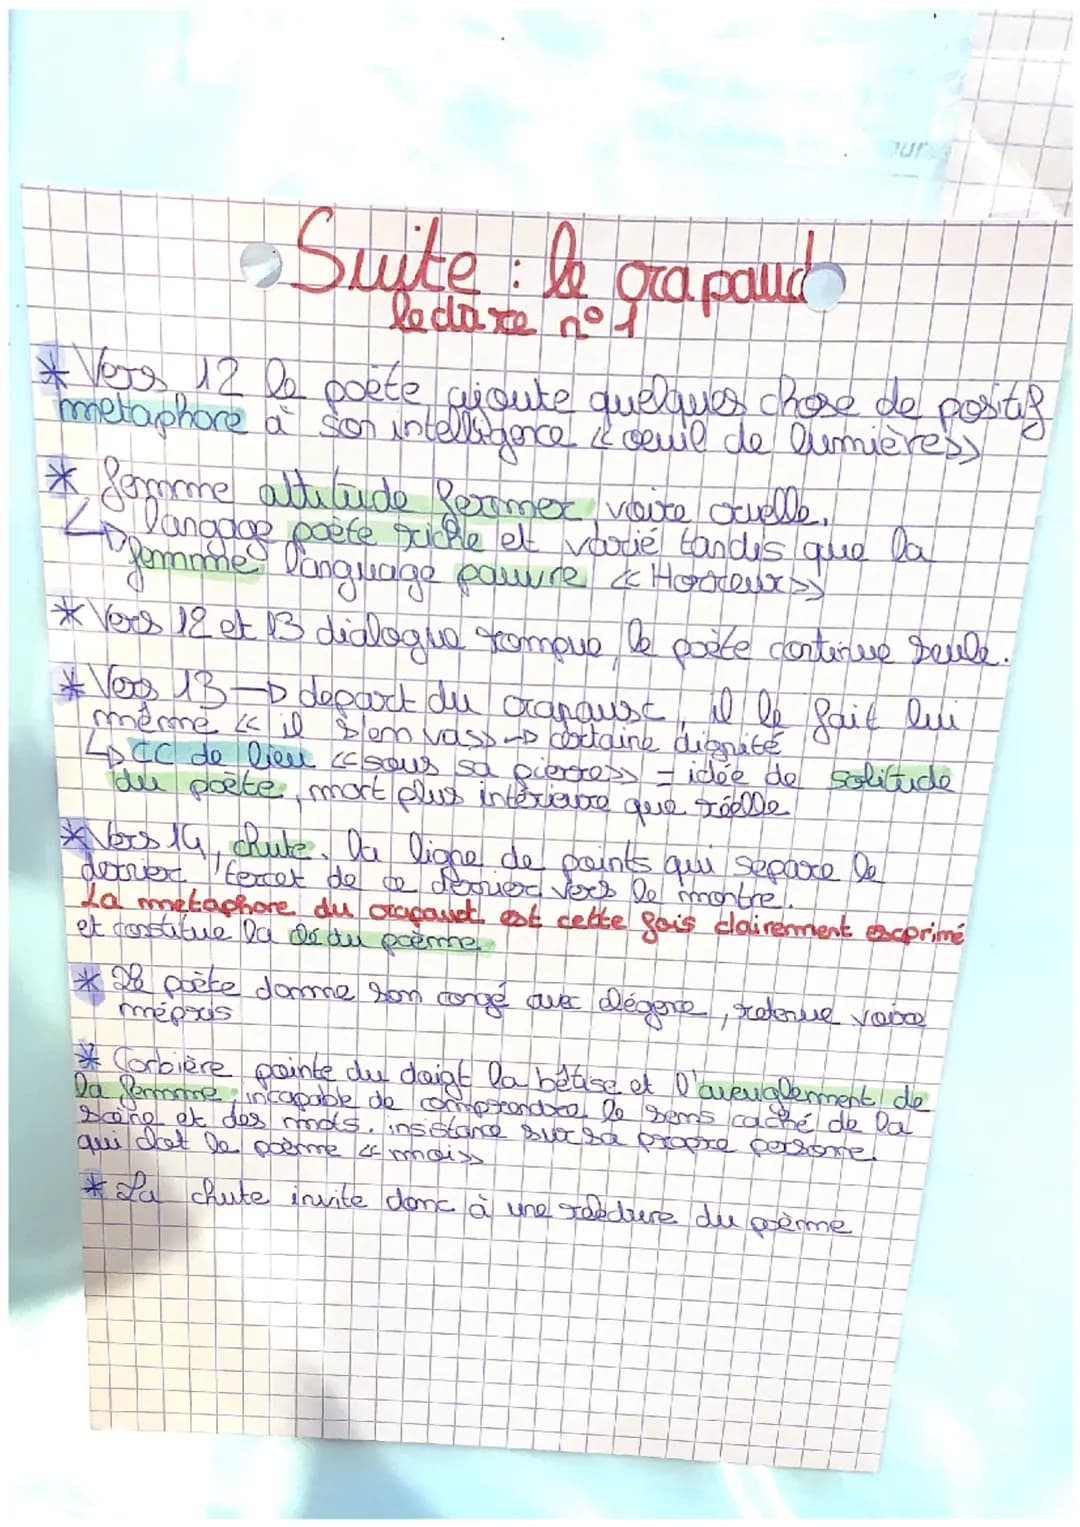 our
Suite : le crapaud
lecture n°1
* Vers 12 le poète ajoute quelques chose de positif
metaphore à son intelligence « oeuil de lumière »
* femme attitude fermer voire cruelle,
↳ langage poète riche et varié tandis que la
femme language pauvre « Horreur »
* Vers 12 et 13 dialogue rompue, le poète continue seule.
* Vers 13 → depart du crapaud, il le fait lui
même « il s'en va » → certaine dignité
↳ CC de lieu « sous sa pierre » = idée de solitude
du poète, mort plus intérieure que réelle
* Vers 14, chute. La ligne de points qui separe le
dernier tercet de ce dernier vers le montre.
La metaphore du crapaud est cette fois clairement exprimé
et constitue la clé du poème
* Le poète donne son congé avec légere, retenue voire
mépris
* Corbière pointe du doigt la bêtise et l'aveuglement de
la femme incapable de comprendre le sens caché de la
scène et des mots. insistance sur sa propre personne
qui clot le poème « moi »
* La chute invite donc à une relecture du poème